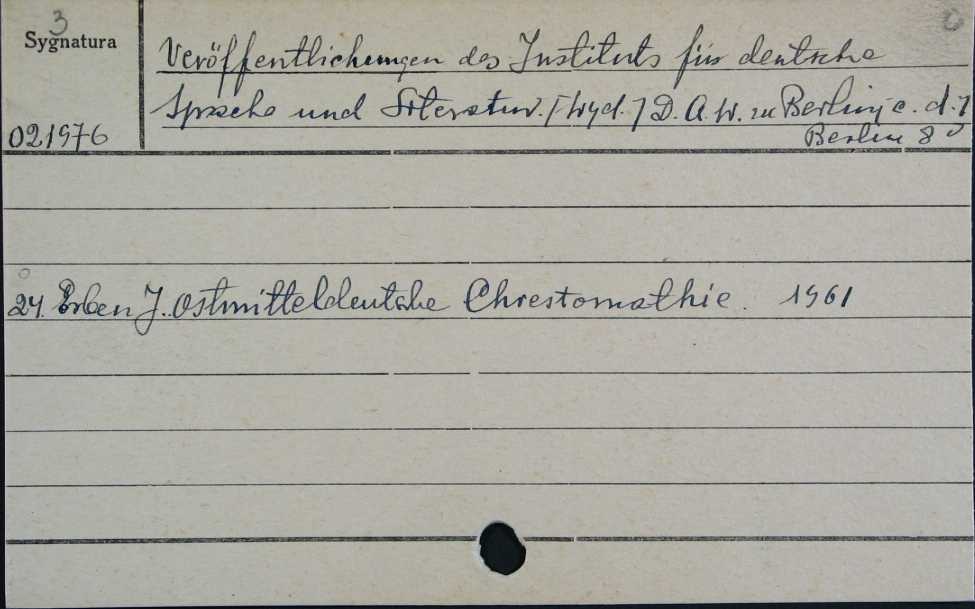 3
Sygnatura
Veröffentlichungen des Instituts für deutsche
Sprache und Literatur. [Wyd.] D. A. W. zu Berlin, c. d. 7
021976
Berlin 8°
24. Erben J. Ostmitteldeutsche Chrestomathie. 1961